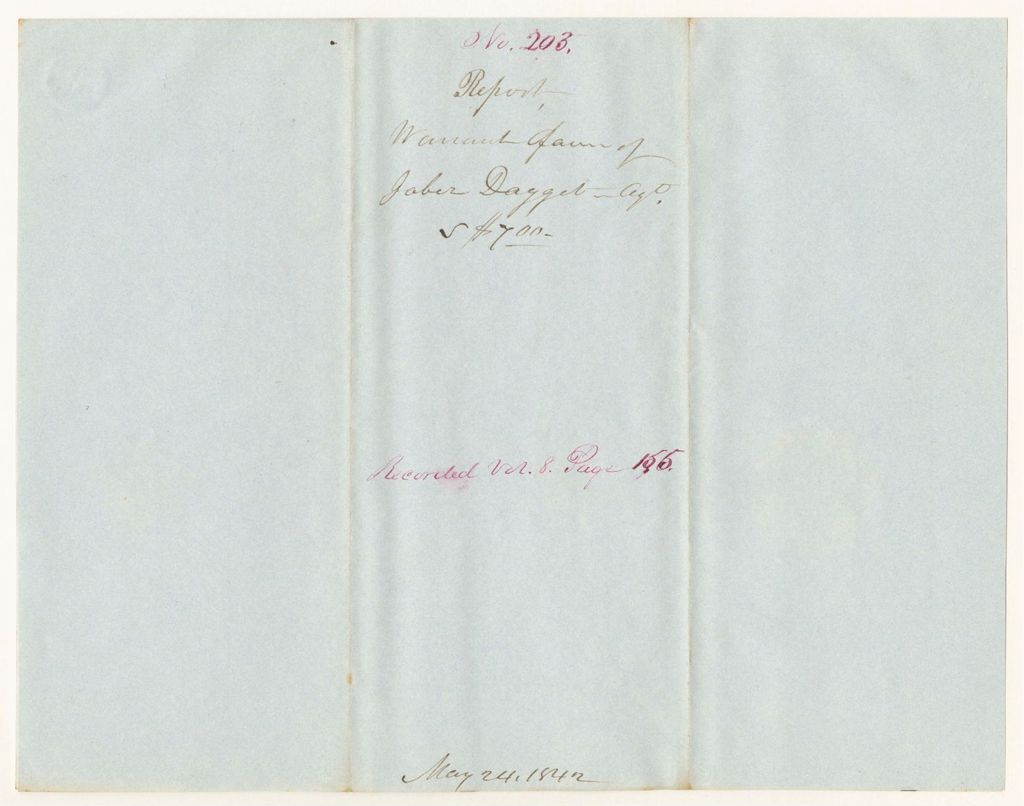 No. 203.
Report,
Warrant favour of
Jaber Dagget - Agt.
$7.00-
Recorded Vol. 8. Page 155.
May 24, 1842